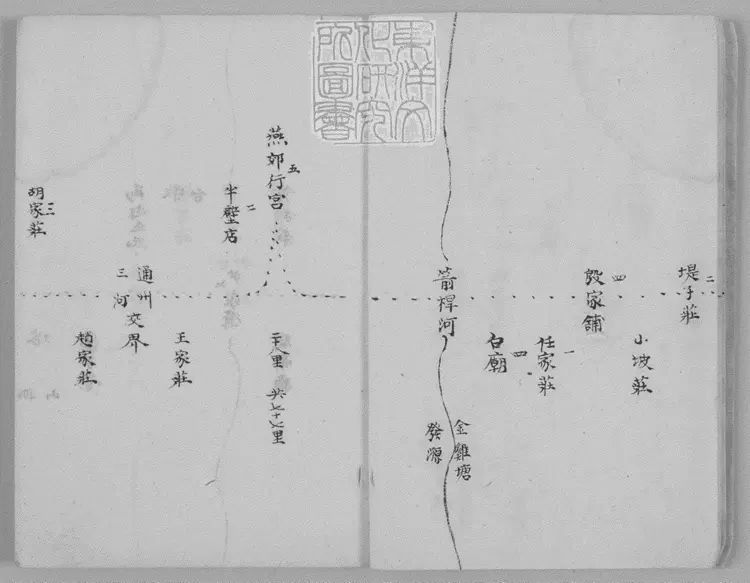 東洋文
化研究
所圖書
堤子莊
二
小坡莊
殷家舖
四
任家莊
一
白廟
四
箭桿河
金雞塘
發源
燕郊行宮
五
二十八里 共七十七里
半壁店
二
王家莊
通州
三河交界
趙家莊
胡家莊
三